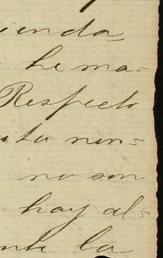 ienda
he ma=
Respecto
ita nin=
no son
hay al=
nte la